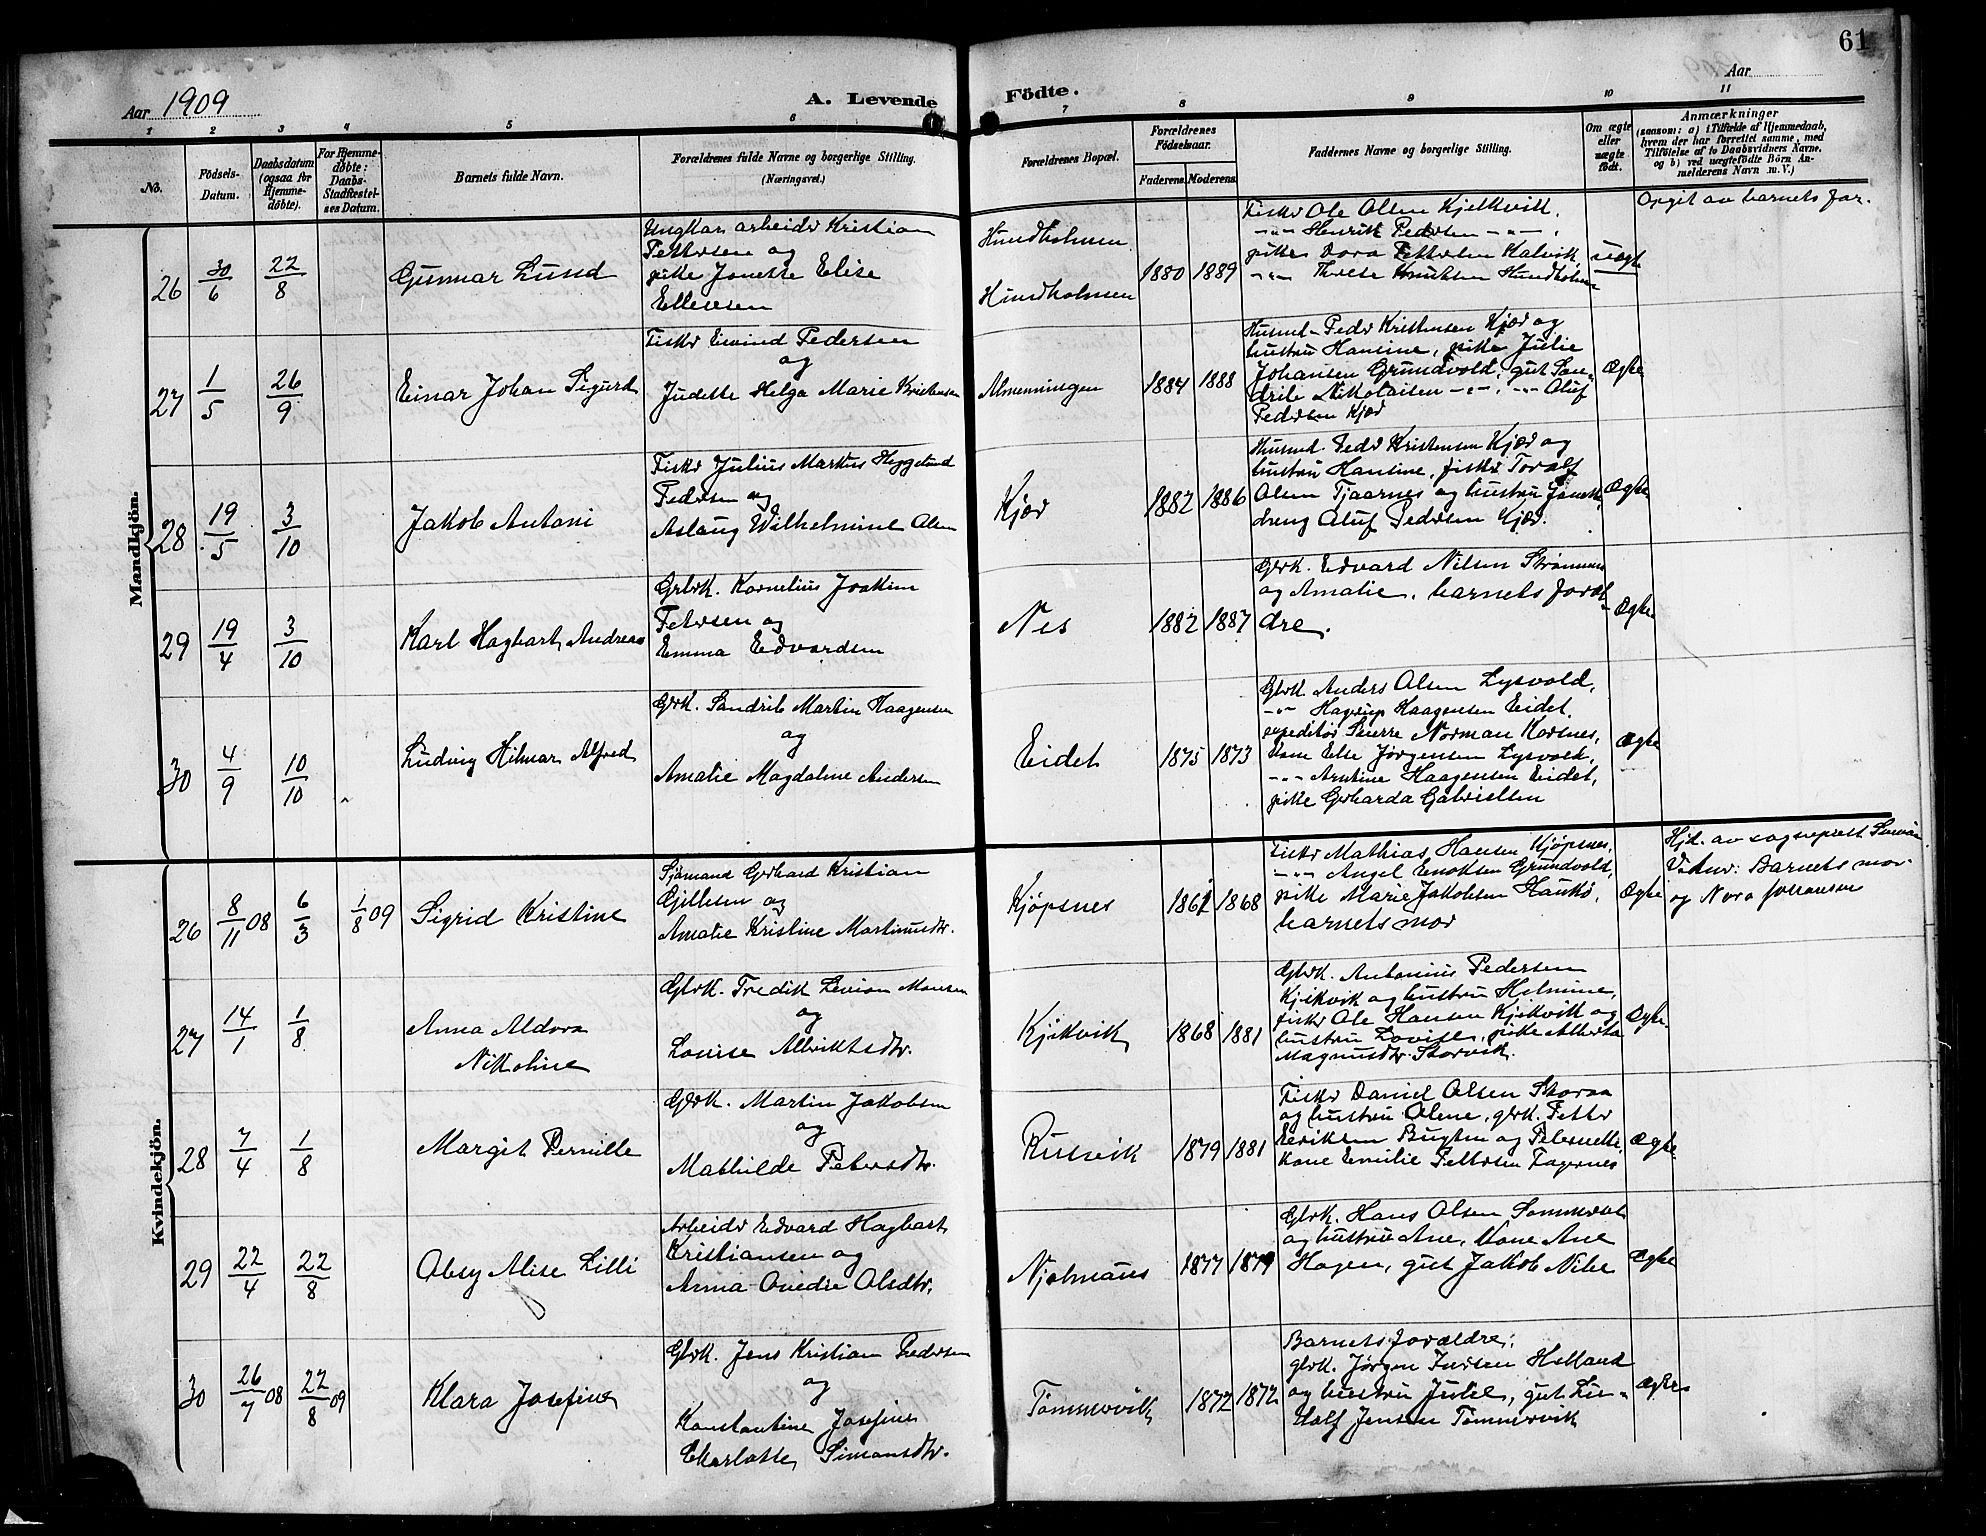 61
Aar 1909
A. Levende
Födte.
Aar
1 2 3 4 5 6
7 8 9 10 11
No.
Födsels-
Datum.
Daabsdatum
(ogsaa for
Hjemme-
døbte).
For Hjemme-
døbte:
Daabs-
Stadfæstel-
ses Datum.
Barnets fulde Navn.
Forældrenes fulde Navne og borgerlige Stilling.
(Næringsvei.)
Forældrenes Bopæl.
Forældrenes
Födselsaar.
Faderens. Moderens.
Faddernes Navne og borgerlige Stilling.
Om ægte
eller
uægte
födt.
Anmærkninger
(saasom: a) i Tilfælde af Hjemmedaab,
hvem der har forrettet samme, med
Tilföielse af to Daabsvidners Navne,
og b) ved uægtefödte Börn An-
melderens Navn m.V.)
Mandkjön.
26
30/6
22/8
Gunnar Lund
Ungkar arbeider Kristian
Pettersen og
pike Jonette Elise
Ellevsen
Hundholmen
Hundholmen
1880 1889
Fisker Ole Olsen Kjelkvik,
-"- Henrik Pedersen -"-,
piker Dora Pettersen Kalvik
-"- Therese Knutsen Hundholmen
uægte
Opgit av barnets far.
27
1/5
26/9
Einar Johan Sigurd
Fisker Eivind Pedersen
og
Judette Helga Marie Kristensen
Almenningen
1884 1888
Husmd. Peder Kristensen Kjær og
hustru Hansine, pike Julie
Johansen Grundvold, gut Sen-
drik Nikolaisen -"-, -"- Oluf
Pedersen Kjær
Ægte
28
19/5
3/10
Jakob Antoni
Fisker Julius Markus
Pedersen og
Aslaug Wilhelmine Olsen
Kjær
1882 1886
Husmd. Peder Kristensen Kjær og
hustru Hansine, fisker Toralf
Olsen Tjaarnes og hustru
dreng Oluf Pedersen Kjær.
Ægte
29
19/4
3/10
Karl Hagbart Andreas
Grbrk. Kornelius Joakim
Petersen og
Emma Edvardsen
Nes
1882 1887
Gbrk. Edvard Nilsen Strømmen
og Amalie, barnets foræl-
dre.
Ægte
30
4/9
10/10
Ludvig Hilmar Alfred
Gbrk. Sandrik Martin Haagensen
og
Amalie Magdaline Andersen
Eidet
1875 1873
Gbrk. Anders Olsen Lysvold,
-"- Hagerup Haagensen Eidet,
expeditør Norman Korsnes,
kone Else Jørgensen Lysvold,
-"- Arntine Haagensen Eidet,
pike Gerharda Gabrielsen
Ægte
Kvindekjön.
26
8/11 08
6/3
1/8 09
Sigrid Kristine
Sjømand Gerhard Kristian
Gillesen og
Amalie Kristine Martinusdtr.
Kjøpsnes
1861 1868
Fisker Mathias Hansen Kjøpsnes,
-"- Angel Enoksen Grundvold,
pike Marie Jakobsen Haukø,
barnets mor
Ægte
Hjd. av sogneprest
Vidner: Barnets mor
og Nora Johansen
27
14/1
1/8
Anna Aldora
Nikoline
Gbrk. Fredik Levion Monsen
og
Lovise Albriktsdtr.
Kjikvik
1868 1881
Gbrk. Antonius Pedersen
Kjikvik og hustru Helmine,
fisker Ole Hansen Kjikvik og
hustru Lovise, pike Alberta
Magnusdtr. Storvik.
Ægte
28
7/4
1/8
Margit Pernille
Gbrk. Martin Jakobsen
og
Mathilde Petersdtr.
Rusvik
1879 1881
Fisker Daniel Olsen Storaa
og hustru Olene, gbrk. Petter
Eeriksen Bugten og Peternette,
kone Emilie Pettersen Fagernes
Ægte
29
22/4
22/8
Obsy Alise Lilli
Arbeider Edvard Hagbart
Kristiansen og
Anna Ovedie Olsdtr.
Njolmaas
1877 1879
Gbrk. Hans Olsen Sommerset
og hustru Ane, kone Ane
Hagen, gut Jakob Nilse
Ægte
30
26/7 08
22/8 09
Klara Josefine
Gbrk. Jens Kristian Pedersen
og
Konstantine Josefine
Charlotte Simonsdtr.
Tømmervik
1872 1872
Barnets forældre,
gbrk. Jørgen Helland
og hustru Julie, gut
Half Jensen Tømmervik
Ægte